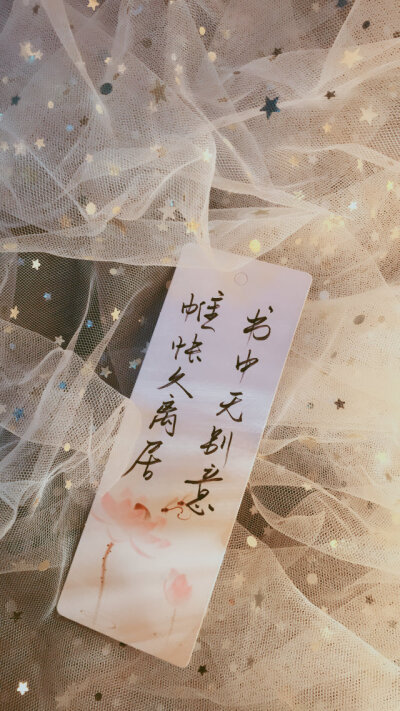 书中无别意
惟怅久离居